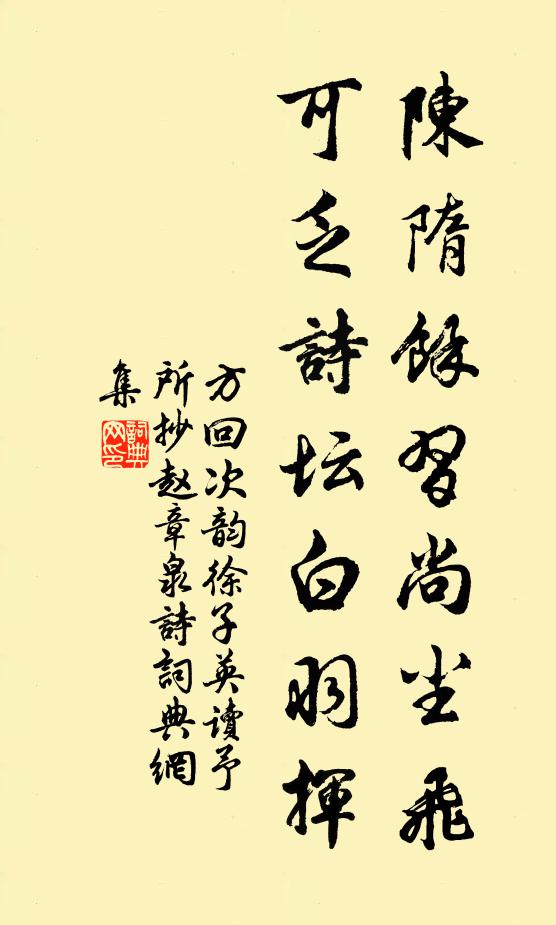 陳隋餘習尚坐飛
可乏詩坛白羽揮
方回次韵徐子英讀予
所抄赵章泉詩詞典網
集
詞典
网印